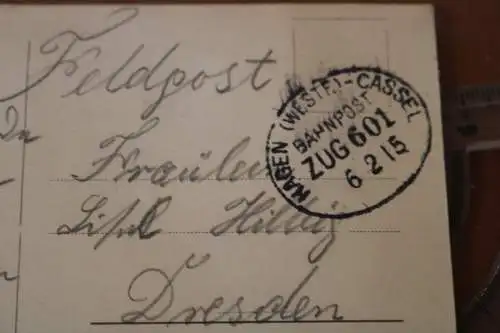 Feldpost
HAGEN (WESTF.)-CASSEL
BAHNPOST
ZUG 601
6 2 15
Fräulein
Hillig
Dresden